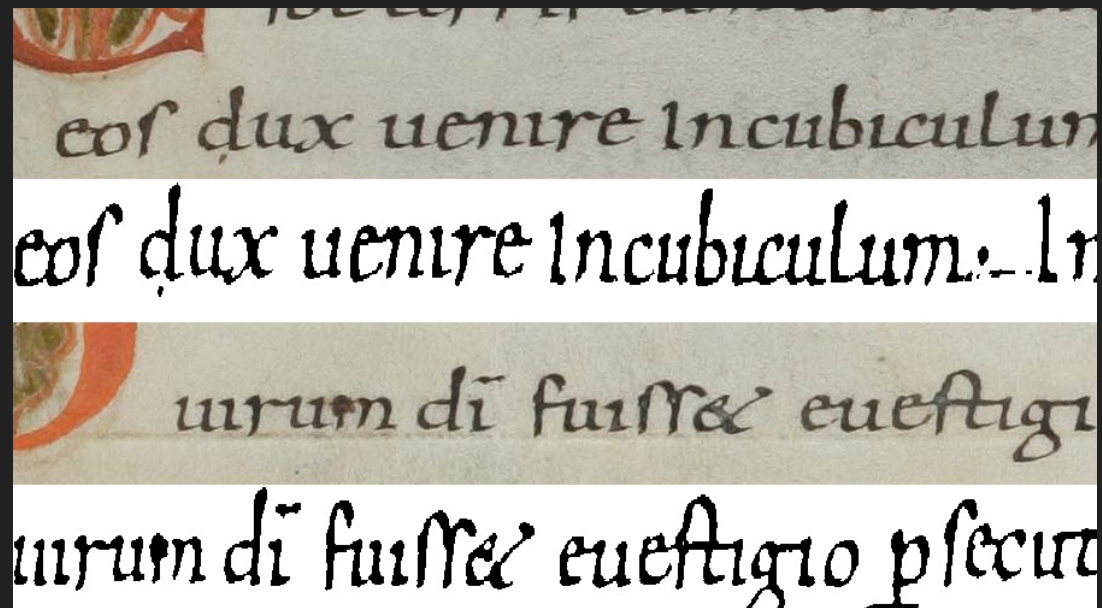 eoſ dux uenire Incubiculum
eoſ dux uenire Incubiculum:- In
uirum dī fuiſſ& eueſtigi
uirum dī fuiſſ& eueſtigio p ſecut